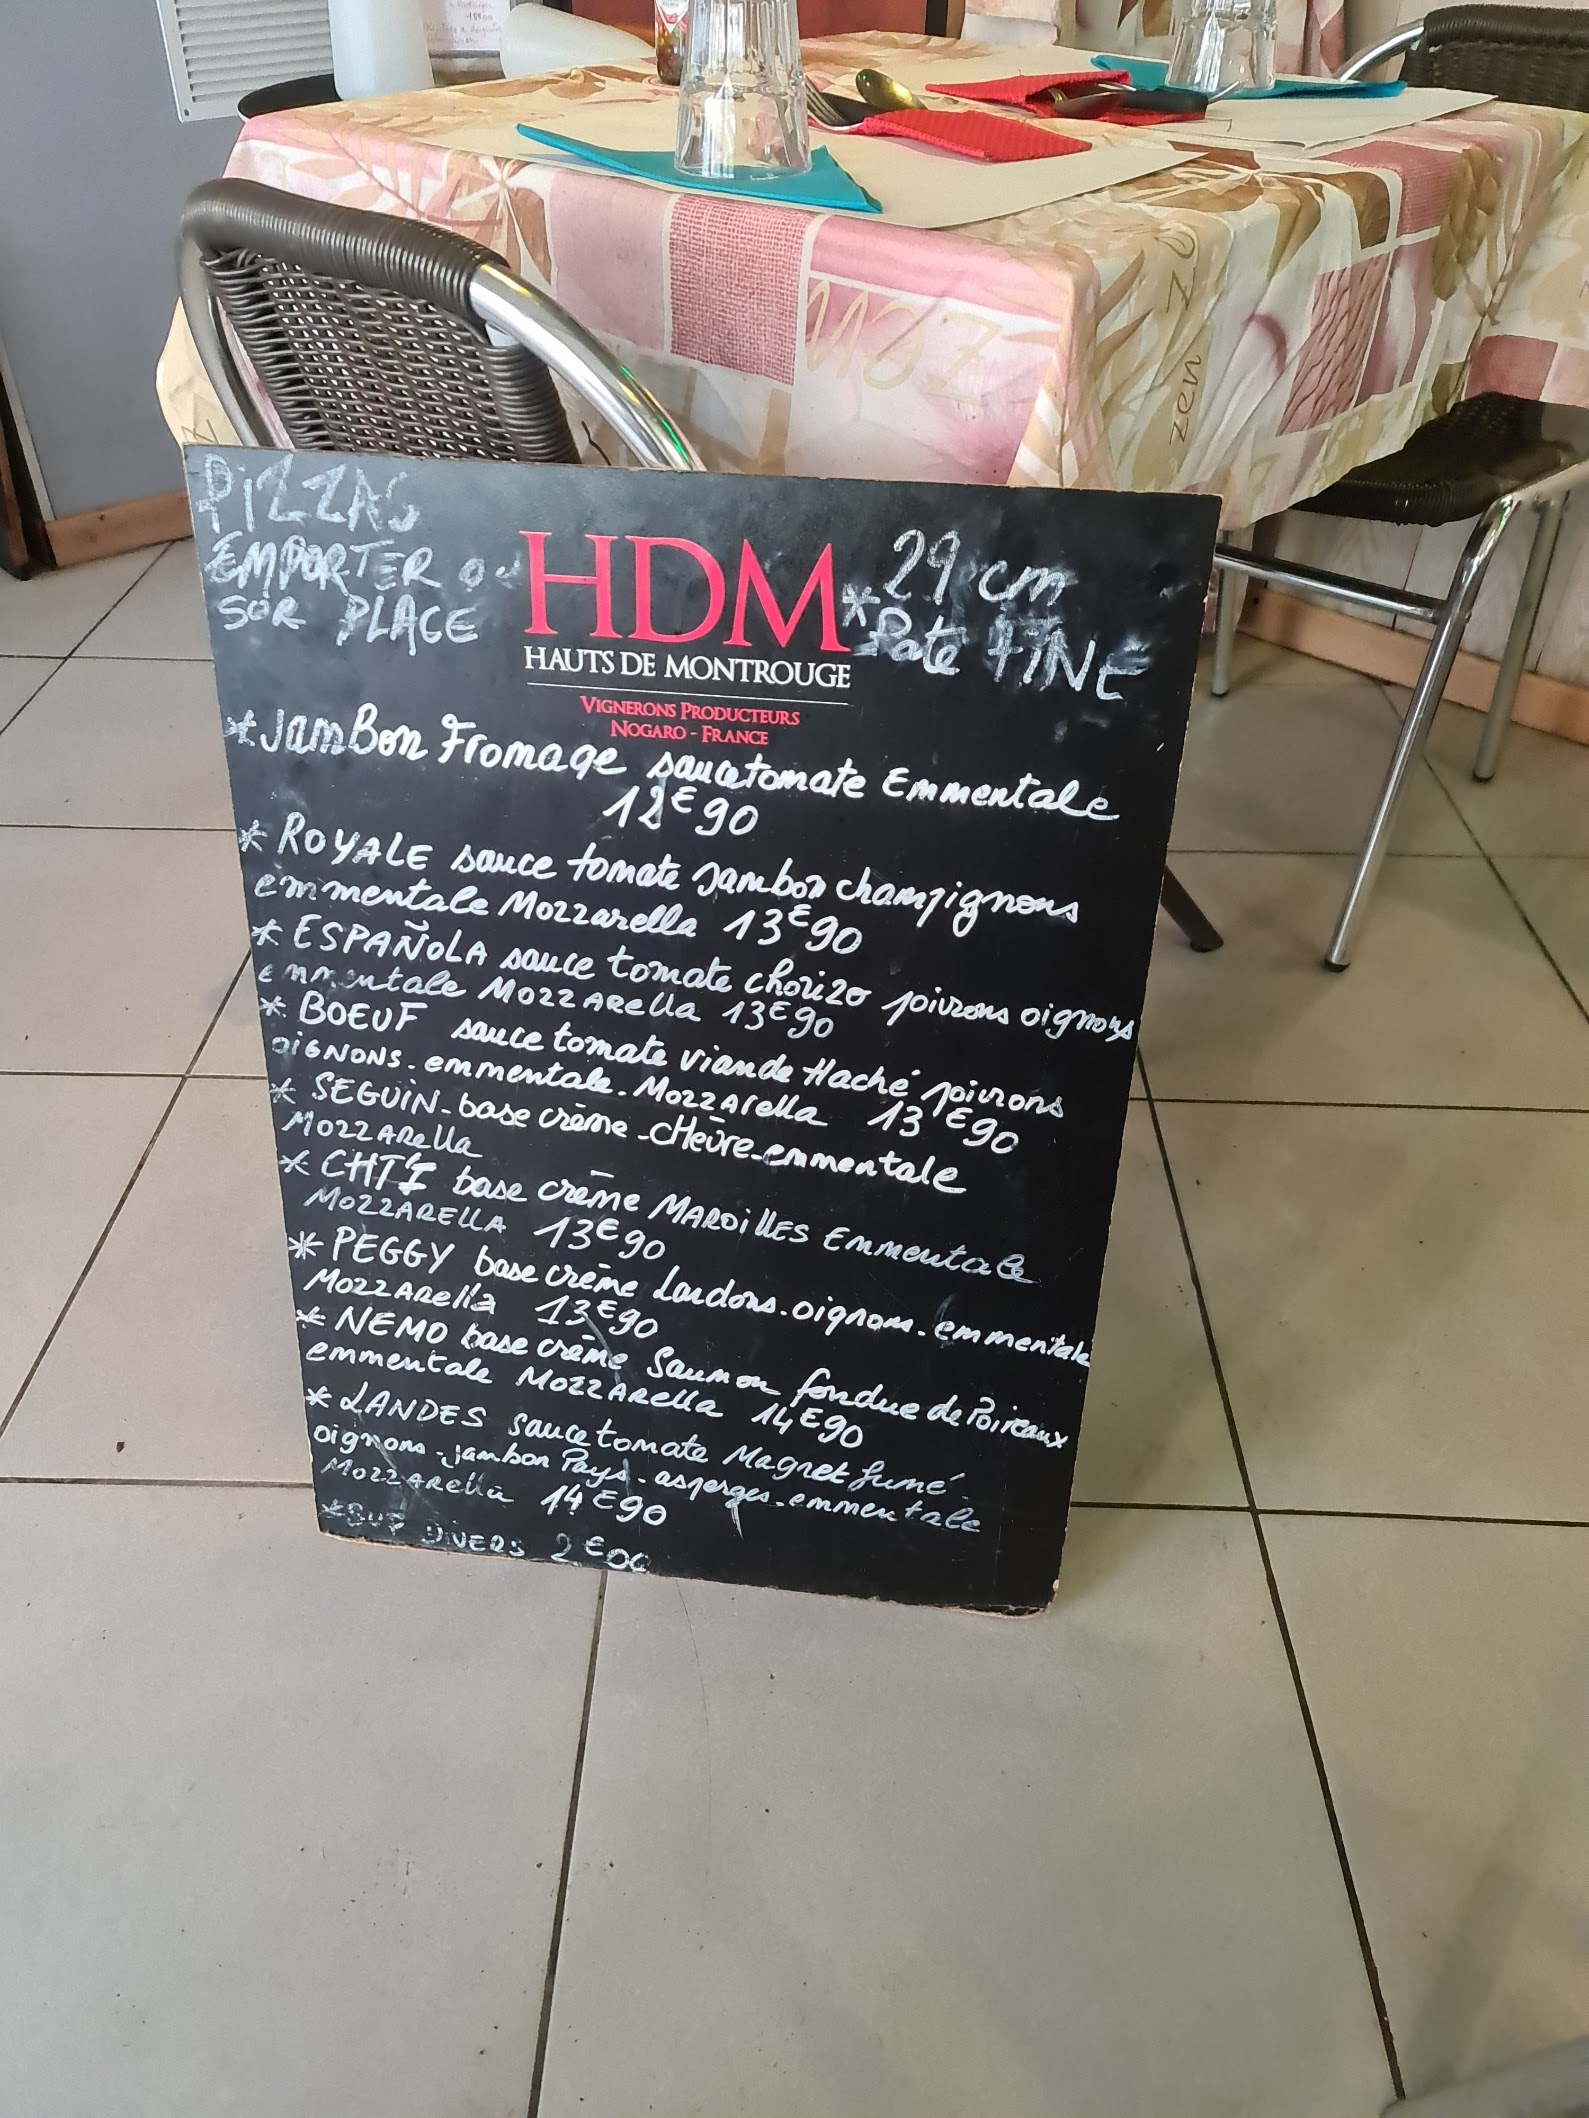 zen
zen
PIZZAS
EMPORTER OU
SUR PLACE
HDM
HAUTS DE MONTROUGE
VIGNERONS PRODUCTEURS
NOGARO - FRANCE
29 cm
*Pate FINE
*JAMBON FROMAGE sauce tomate Emmentale
12€90
* ROYALE sauce tomate Jambon champignons
emmentale Mozzarella 13€90
* ESPAÑOLA sauce tomate chorizo poivrons oignons
emmentale MOZZARella 13€90
* BOEUF sauce tomate viande Haché poivrons
OIGNONS. emmentale. MOZZARella 13€90
* SEGUIN - base crème - CHèvre - emmentale
MOZZARella
* CHT'I base crème MAROILLES Emmentale
MOZZARELLA 13€90
* PEGGY base crème Lardons. oignons. emmentale
MOZZARella 13€90
* NEMO base crème Saumon fondue de Poireaux
emmentale MOZZARella 14€90
* LANDES sauce tomate Magret fumé.
oignons - jambon Pays - asperges - emmentale
MOZZARella 14€90
* DIVERS 2€00